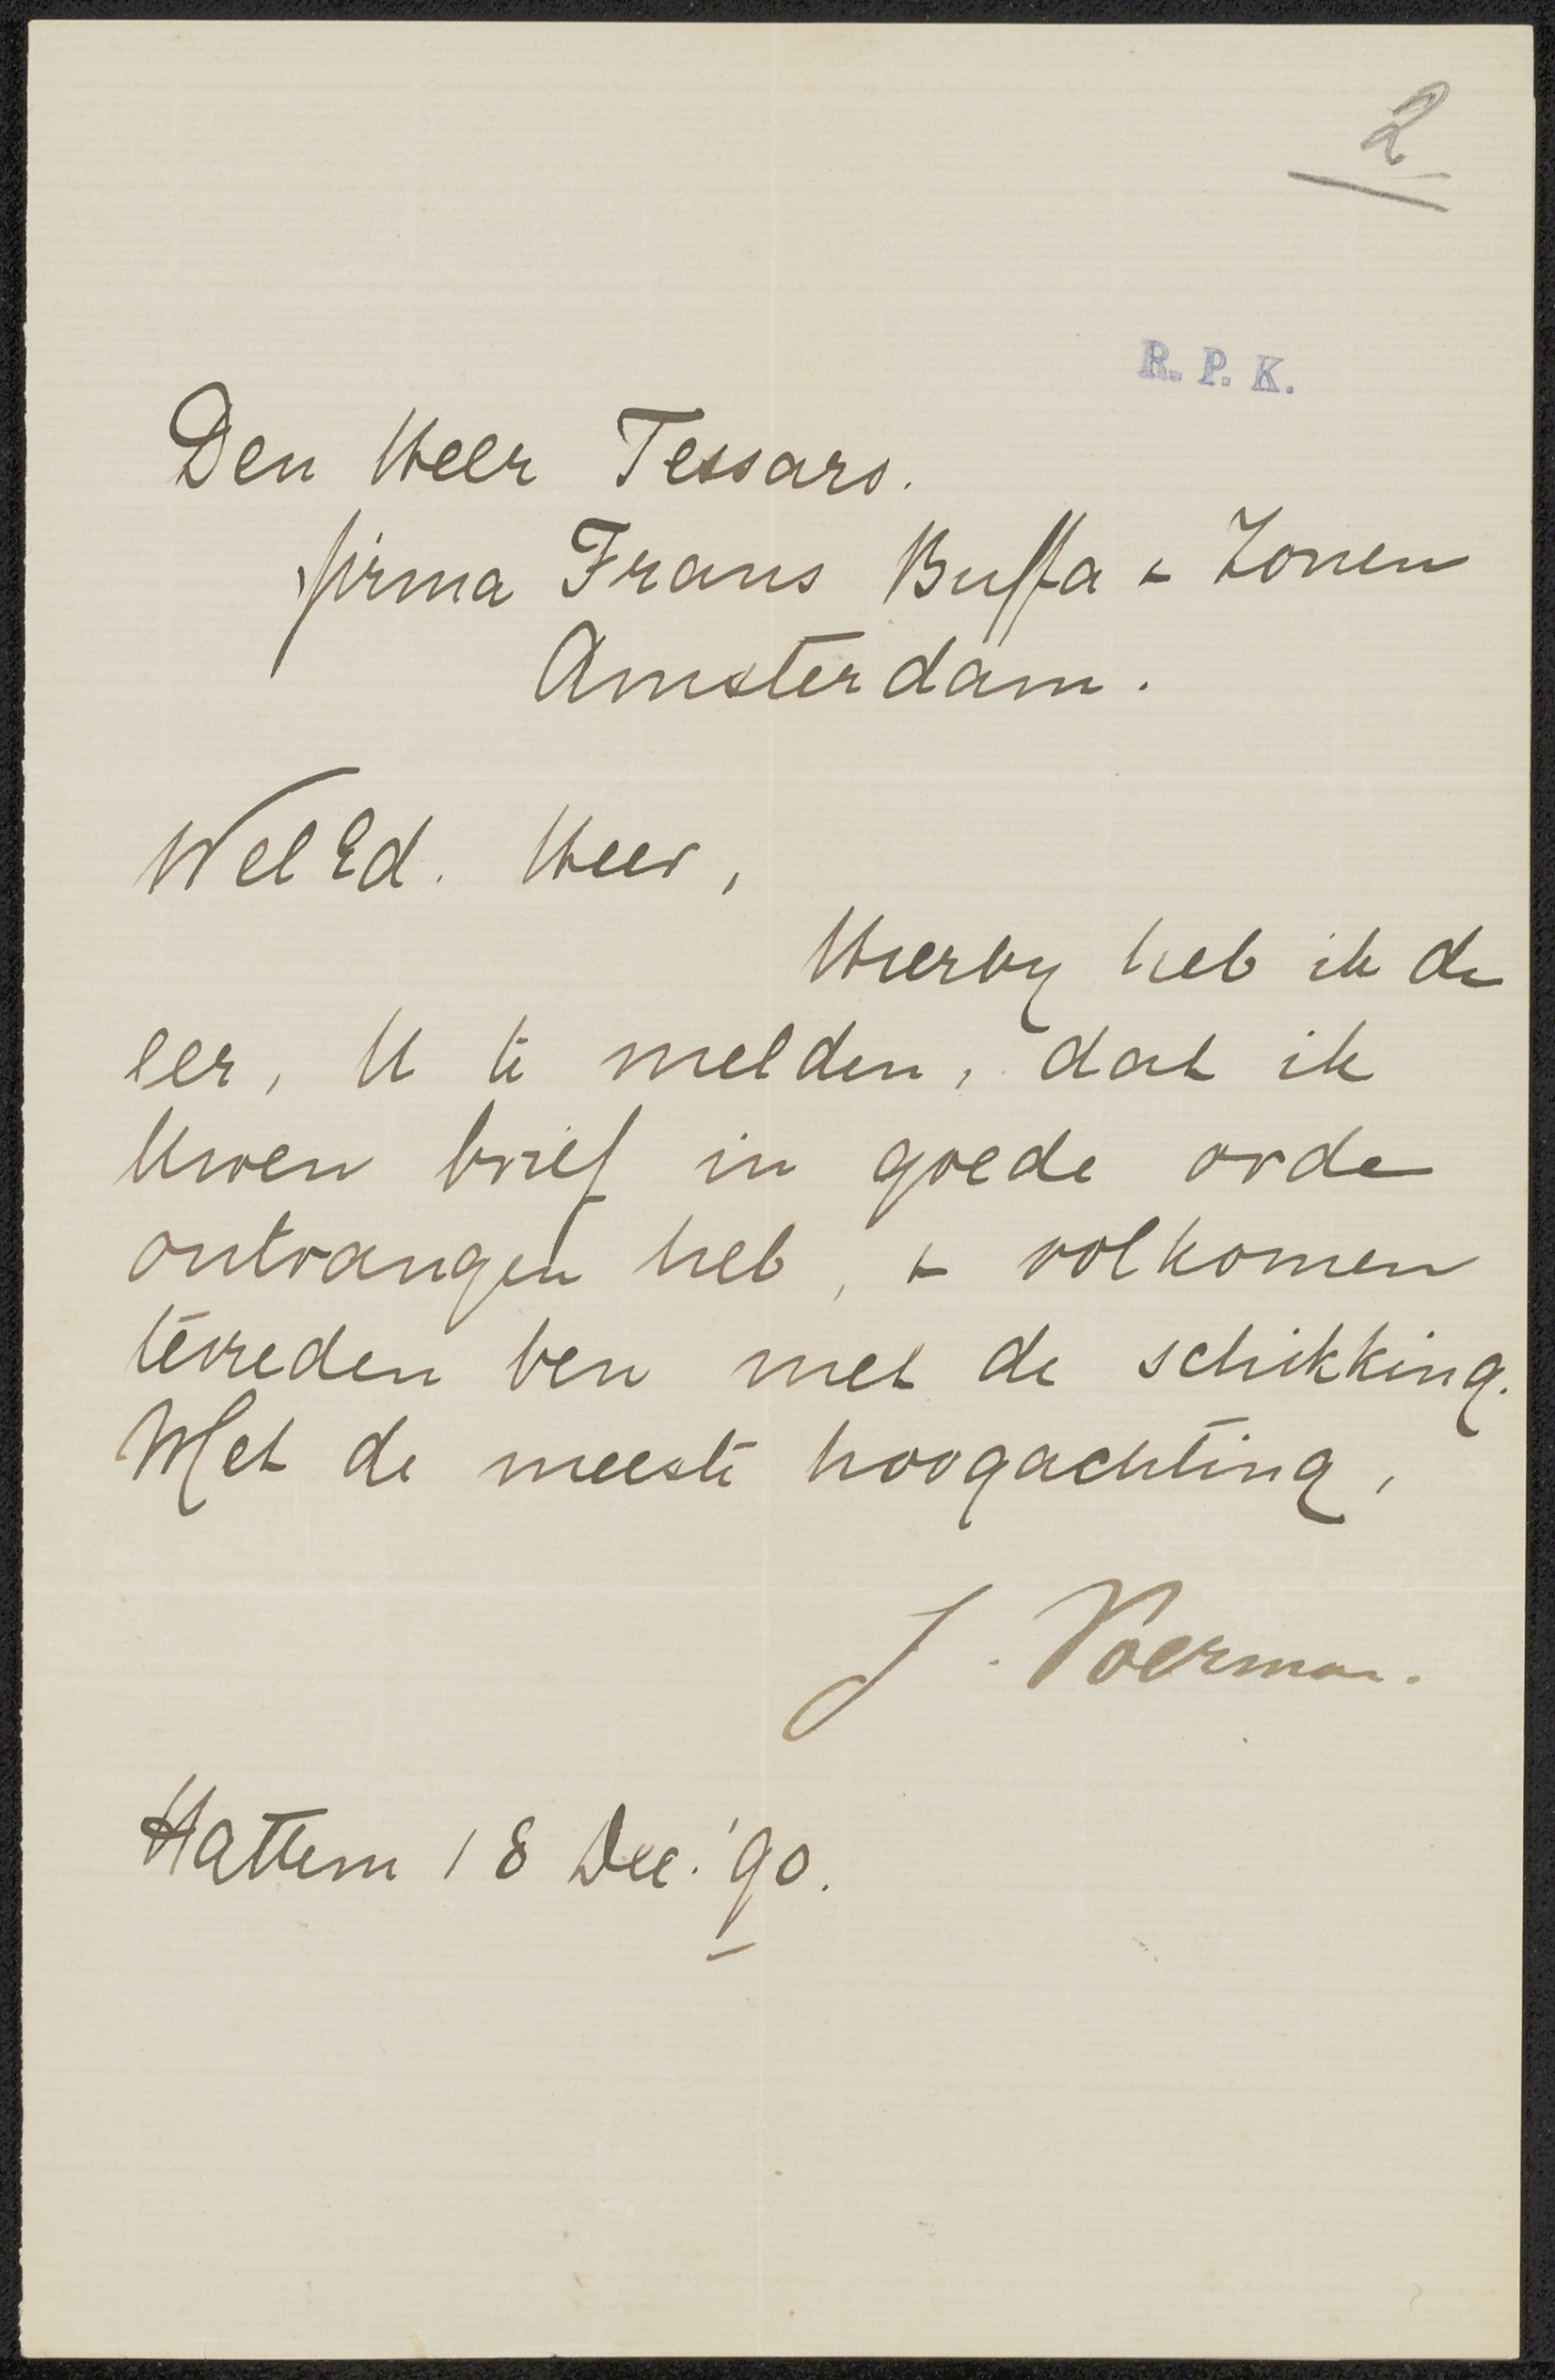 2
R. P. K.
Den Heer Tessaro.
firma Frans Buffa & Zonen
Amsterdam.
WelEd. Heer,
Hierby heb ik de
eer, U te melden, dat ik
Uwen brief in goede orde
ontvangen heb, & volkomen
tevreden ben met de schikking.
Met de meeste hoogachting,
J. Voerman.
Hattem 18 Dec. '90.